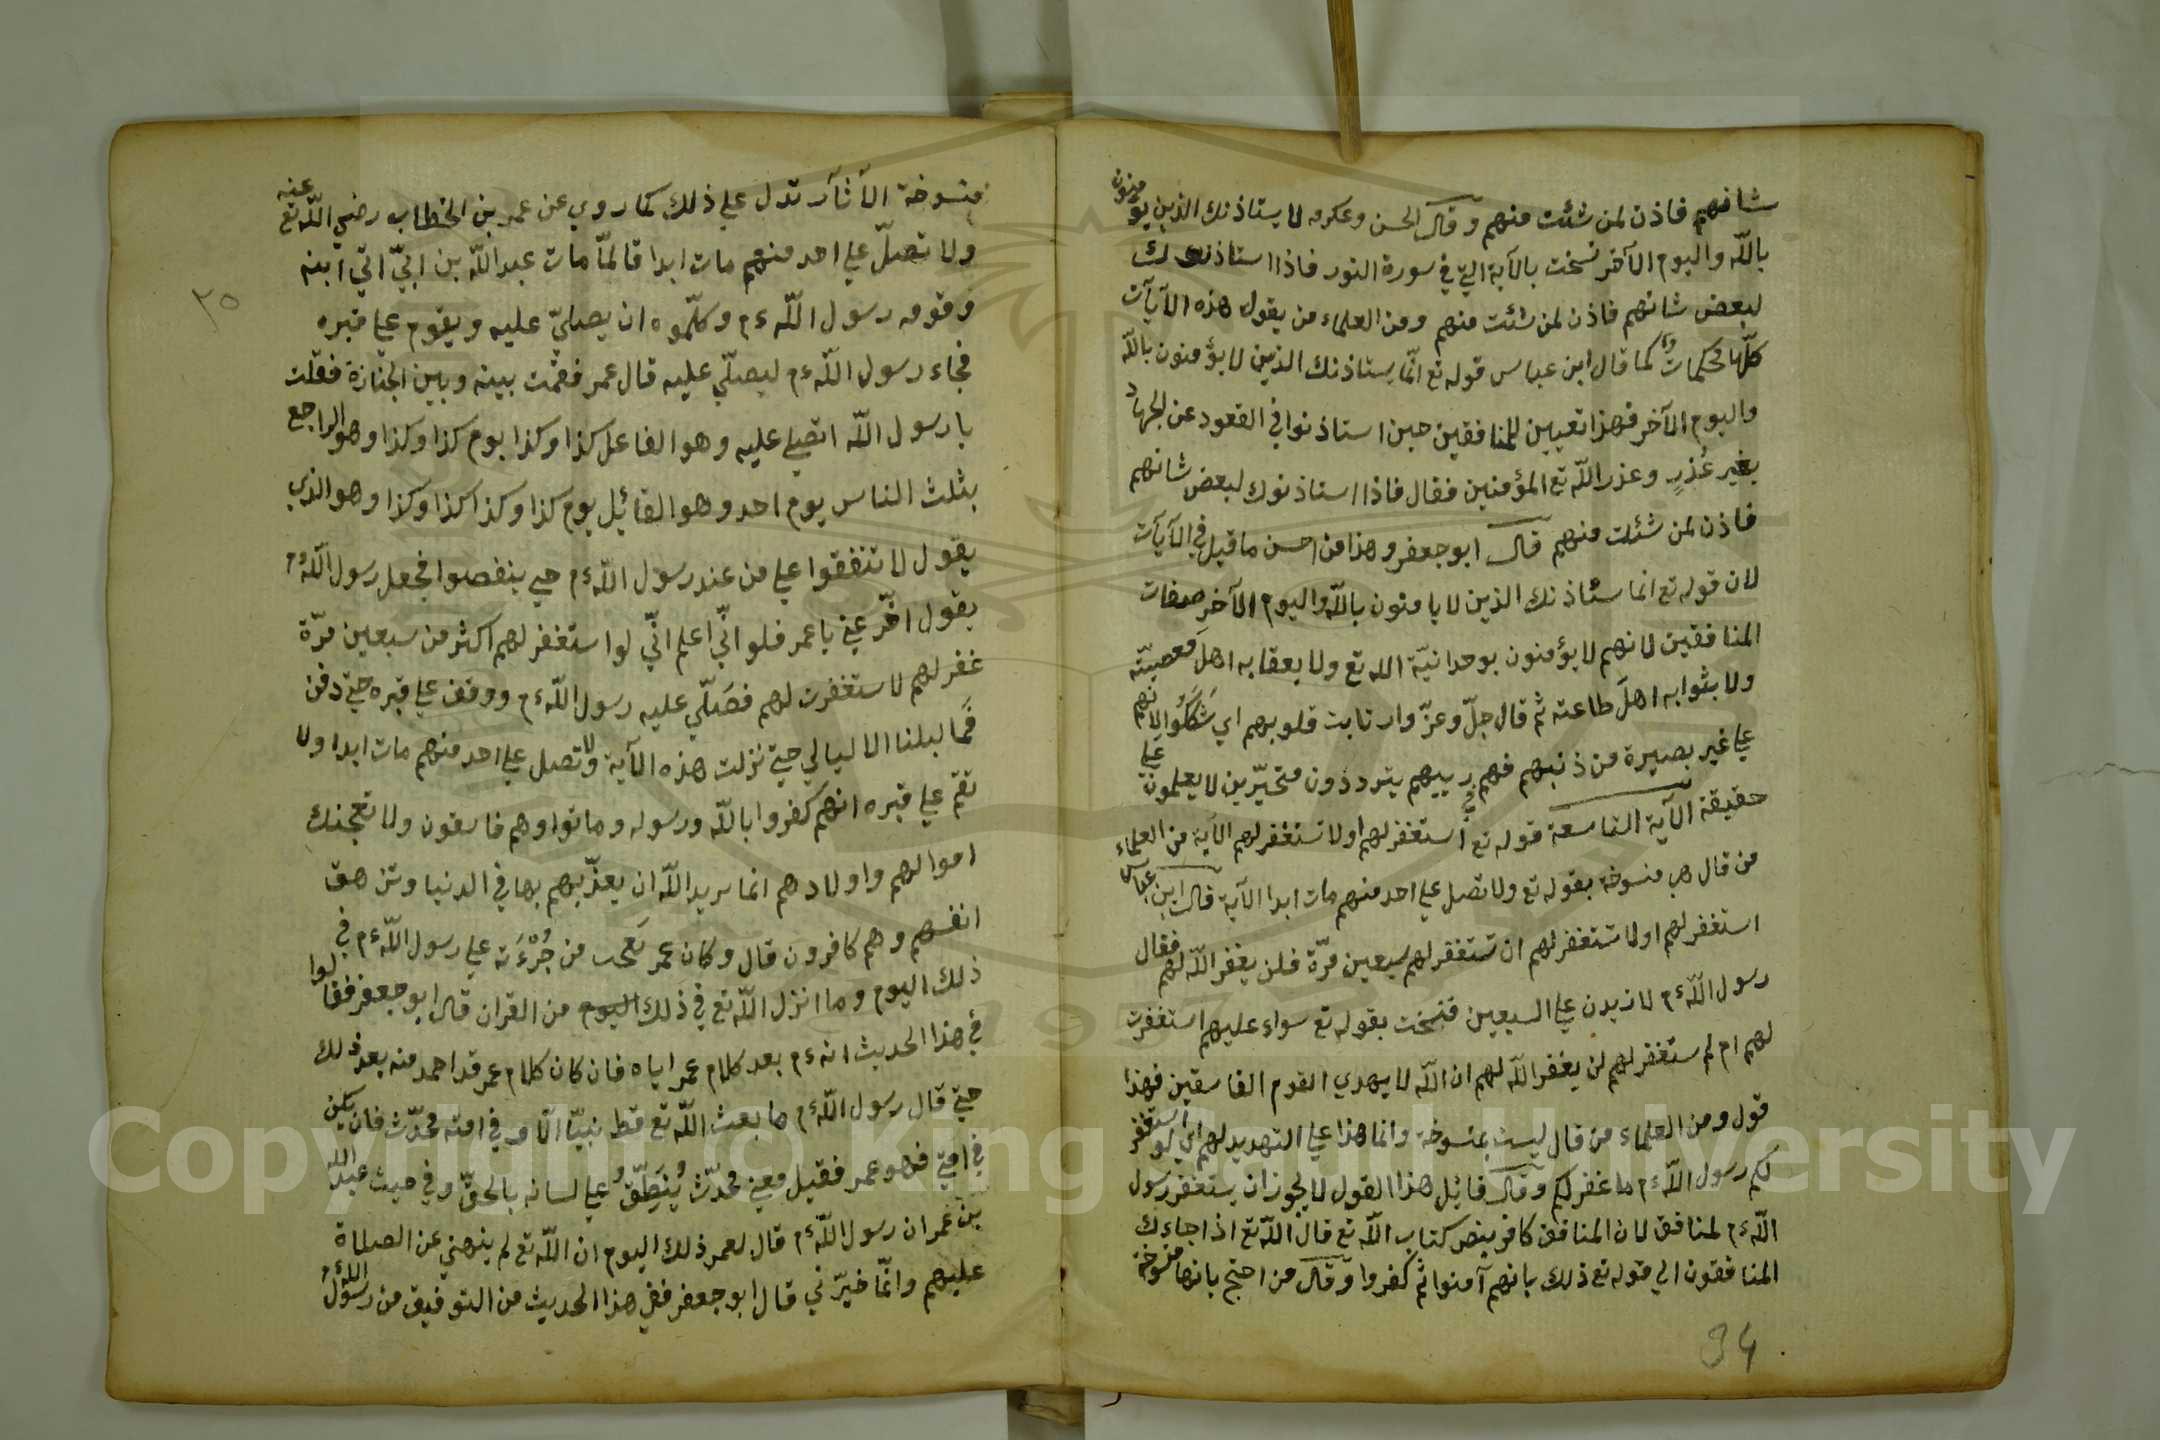 شانهم فاذن لمن شئت منهم وقال الحسن وعكرمه لا يستاذنك الذين يؤمنون
بالله واليوم الآخر نسخت بالآية التي في سورة النور فاذا استاذنوك
لبعض شانهم فاذن لمن شئت منهم ومن العلماء من يقول هذه الآيآت
كلّها محكمات كما قال ابن عباس قوله تع انّما يستاذنك الذين لا يؤمنون بالله
واليوم الآخر فهذا تعيين للمنافقين حين استاذنوا في القعود عن الجهاد
بغير عُذرٍ وعذر الله تع المؤمنين فقال فاذا استاذنوك لبعض شانهم
فاذن لمن شئت منهم قال ابو جعفر وهذا من احسن ما قيل في الآيآت
لان قوله تع انما ستاذنك الذين لا يامنون بالله واليوم الآخر صفات
المنافقين لانهم لا يؤمنون بوحدانيّة الله تع ولا بعقابه اهلَ مَعصيّته
ولا بثوابه اهلَ طاعته ثم قال جلّ وعزّ وارتابت قلوبهم اي شَكَكُوا لانهم
علي غير بصيرة من ذنبهم فهم في ريبهم يترددون متحيّرين لا يعلمون علي
حقيقة الآية التاسعة قوله تع استغفر لهم اولا تستغفر لهم الآية من العلماء
من قال هي منسوخة بقوله تع ولا تصل علي احد منهم مات ابدا الآية قال ابن عباس
استغفر لهم اولا تستغفر لهم ان تستغفر لهم سبعين مرّة فلن يغفر الله لهم فقال
رسول الله ءم لازيدن علي السبعين فنسخت بقوله تع سواء عليهم استغفرت
لهم ام لم ستغفر لهم لن يغفر الله لهم ان الله لا يهدي القوم الفاسقين فهذا
قول ومن العلماء من قال ليست بمنسوخة وانما هذا علي التهديد لهم اي لو استغفر
لكم رسول الله ءم ما غفر لكم وقال قائل هذا القول لا يجوز ان يستغفر رسول
الله ءم لمنافق لان المنافق كافر بنص كتاب الله تع قال الله تع اذا جاءك
المنافقون الي قوله تع ذلك بانهم آمنوا ثم كفروا وقال من احتج بانها منسوخة
34
٣٥
منسوخة الآثآر تدل علي ذلك كما روي عن عمر بن الخطاب رضي الله تع عنه
ولا تصلّ علي احد منهم مات ابدا قال لمّا مات عبد الله بن ابيّ اتي ابنه
وقومه رسول الله ءم وكلّموه ان يصليّ عليه ويقوم علي قبره
فجاء رسول الله ءم ليصلّي عليه قال عمر فقمت بينه وبين الجنازة فقلت
يا رسول الله اتصلي عليه وهو الفاعل كذا وكذا يوم كذا وكذا وهو الراجع
بثلث الناس يوم احد وهو القائيل يوم كذا وكذا كذا وكذا وهو الذي
يقول لا تنفقوا علي من عند رسول الله ءم حتي ينفضوا فجعل رسول الله ءم
يقول اخّر عني يا عمر فلو انّي اعلم انّي لو استغفر لهم اكثر من سبعين مرّة
غفر لهم لاستغفرت لهم فصَلّي عليه رسول الله ءم ووقف علي قبره حتي دفن
فَما لبلنا الا ليالي حتي نزلت هذه الآية ولا تصل علي احد منهم مات ابدا ولا
تقم علي قبره انهم كفروا بالله ورسوله وماتوا وهم فاسقون ولا تعجبنك
اموالهم واولادهم انما يريد الله ان يعذّبهم بها في الدنيا وتزهق
انفسهم وهم كافرون قال وكان عمر يَعجب من جُرْءَته علي رسول الله ءم في
ذلك اليوم وما انزل الله تع في ذلك اليوم من القران قال ابو جعفر فقالوا
في هذا الحديث انه ءم بعد كلام عمر اياه فان كان كلام عمر قد احمد منه بعد ذلك
حتي قال رسول الله ءم ما بعث الله تع قط نبيّا الّا و في امته محدّث فان يكن
في امتي فهو عمر فقيل معني محدّث يُنَطِّقُ علي لسانه بالحقّ وفي حيث عبد الله
بن عمر ان رسول الله ءم قال لعمر ذلك اليوم ان الله تع لم ينهني عن الصلاة
عليهم وانّما خيّرني قال ابو جعفر ففي هذا الحديث من التوفيق من رسول الله ءم
Copyright © King Saud University
1957